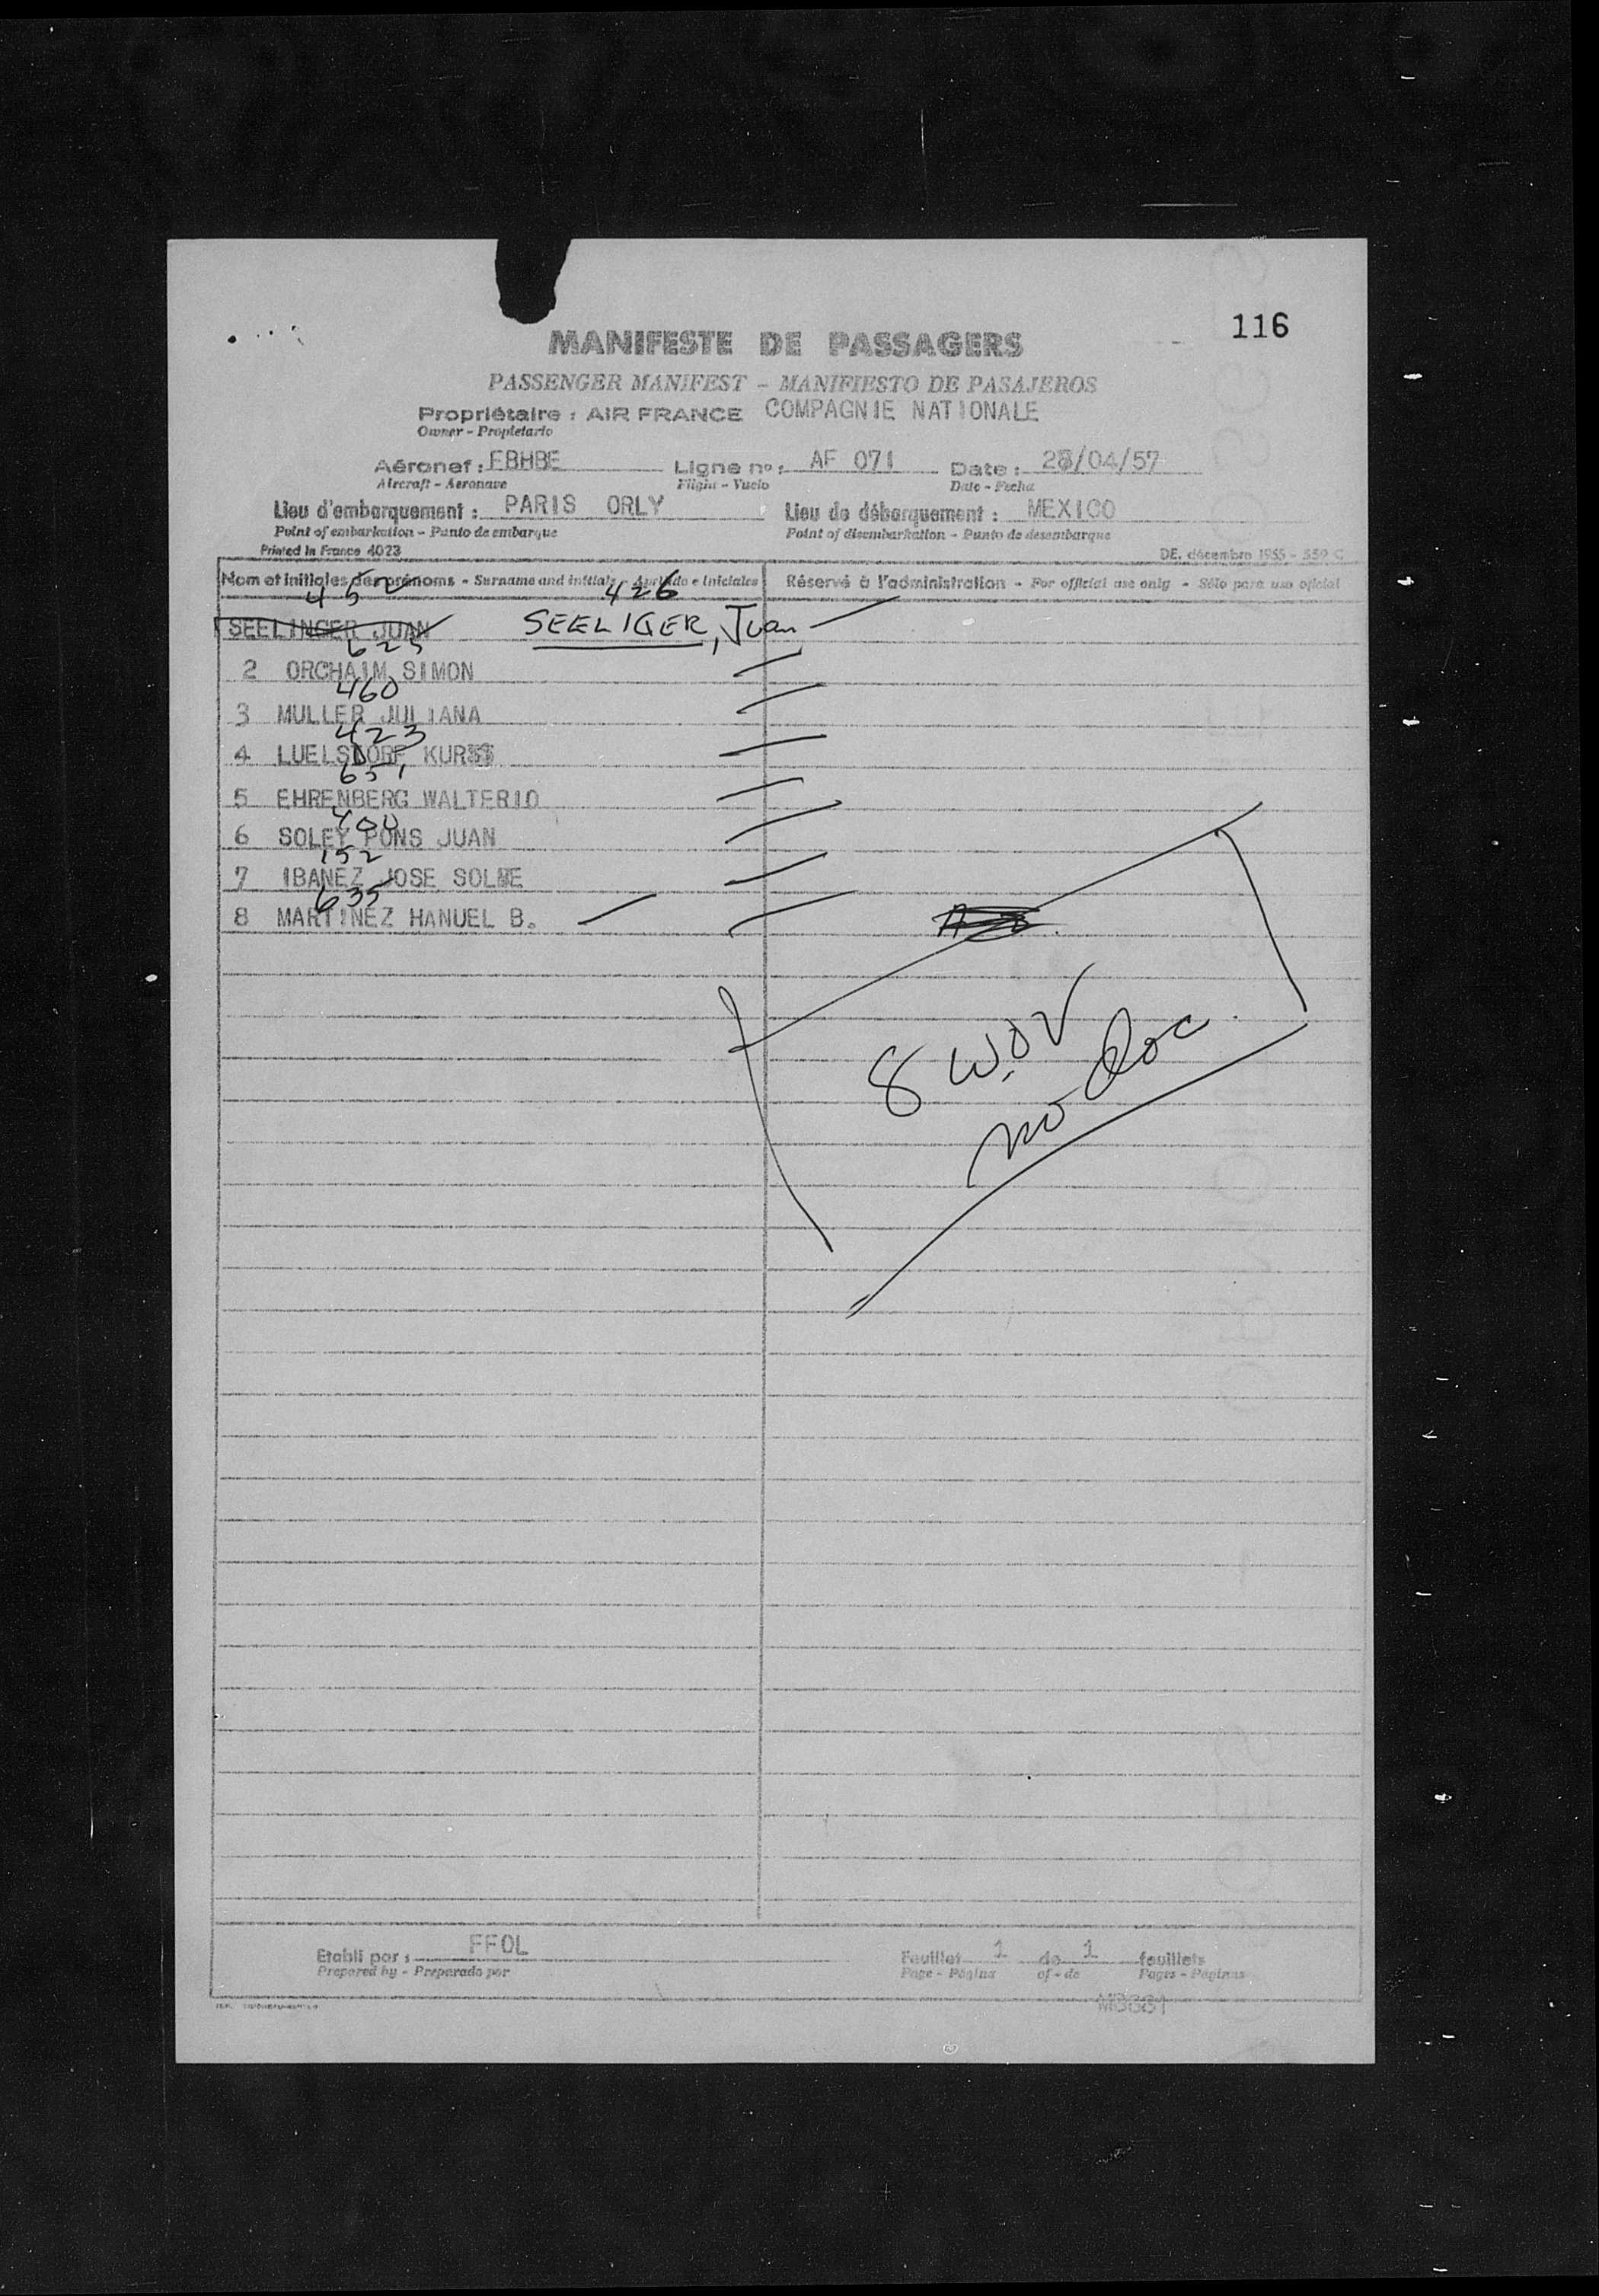 116
MANIFESTE DE PASSAGERS
PASSENGER MANIFEST - MANIFIESTO DE PASAJEROS
Propriétaire : AIR FRANCE COMPAGNIE NATIONALE
Owner - Propietario
Aéronef : FBHBE Ligne no : AF 071 Date : /04/57
Aircraft - Aeronave Flight - Vuelo Date - Fecha
Lieu d'embarquement : PARIS ORLY Lieu de débarquement : MEXICO
Point of embarkation - Punto de embarque Point of disembarkation - Punto de desembarque
Printed in France 4023 DE. décembre 1955 - 550 C
Nom et initiales des prénoms - Surname and initials - Apellido e Iniciales Réservé à l'administration - For official use only - Sólo para uso oficial
452 426
SEELINGER JUAN SEELIGER, Juan
625
2 ORCHAIM SIMON
460
3 MULLER JULIANA
423
4 LUELSDORF KUR
651
5 EHRENBERG WALTERIO
400
6 SOLEY PONS JUAN
152
7 IBANEZ JOSE
635
8 MARTINEZ HANUEL B.
8 W.OV
no doc.
Etabli par : FFOL Feuillet 1 de 1 feuillets
Prepared by - Preparado por Page - Página of - de Pages - Páginas